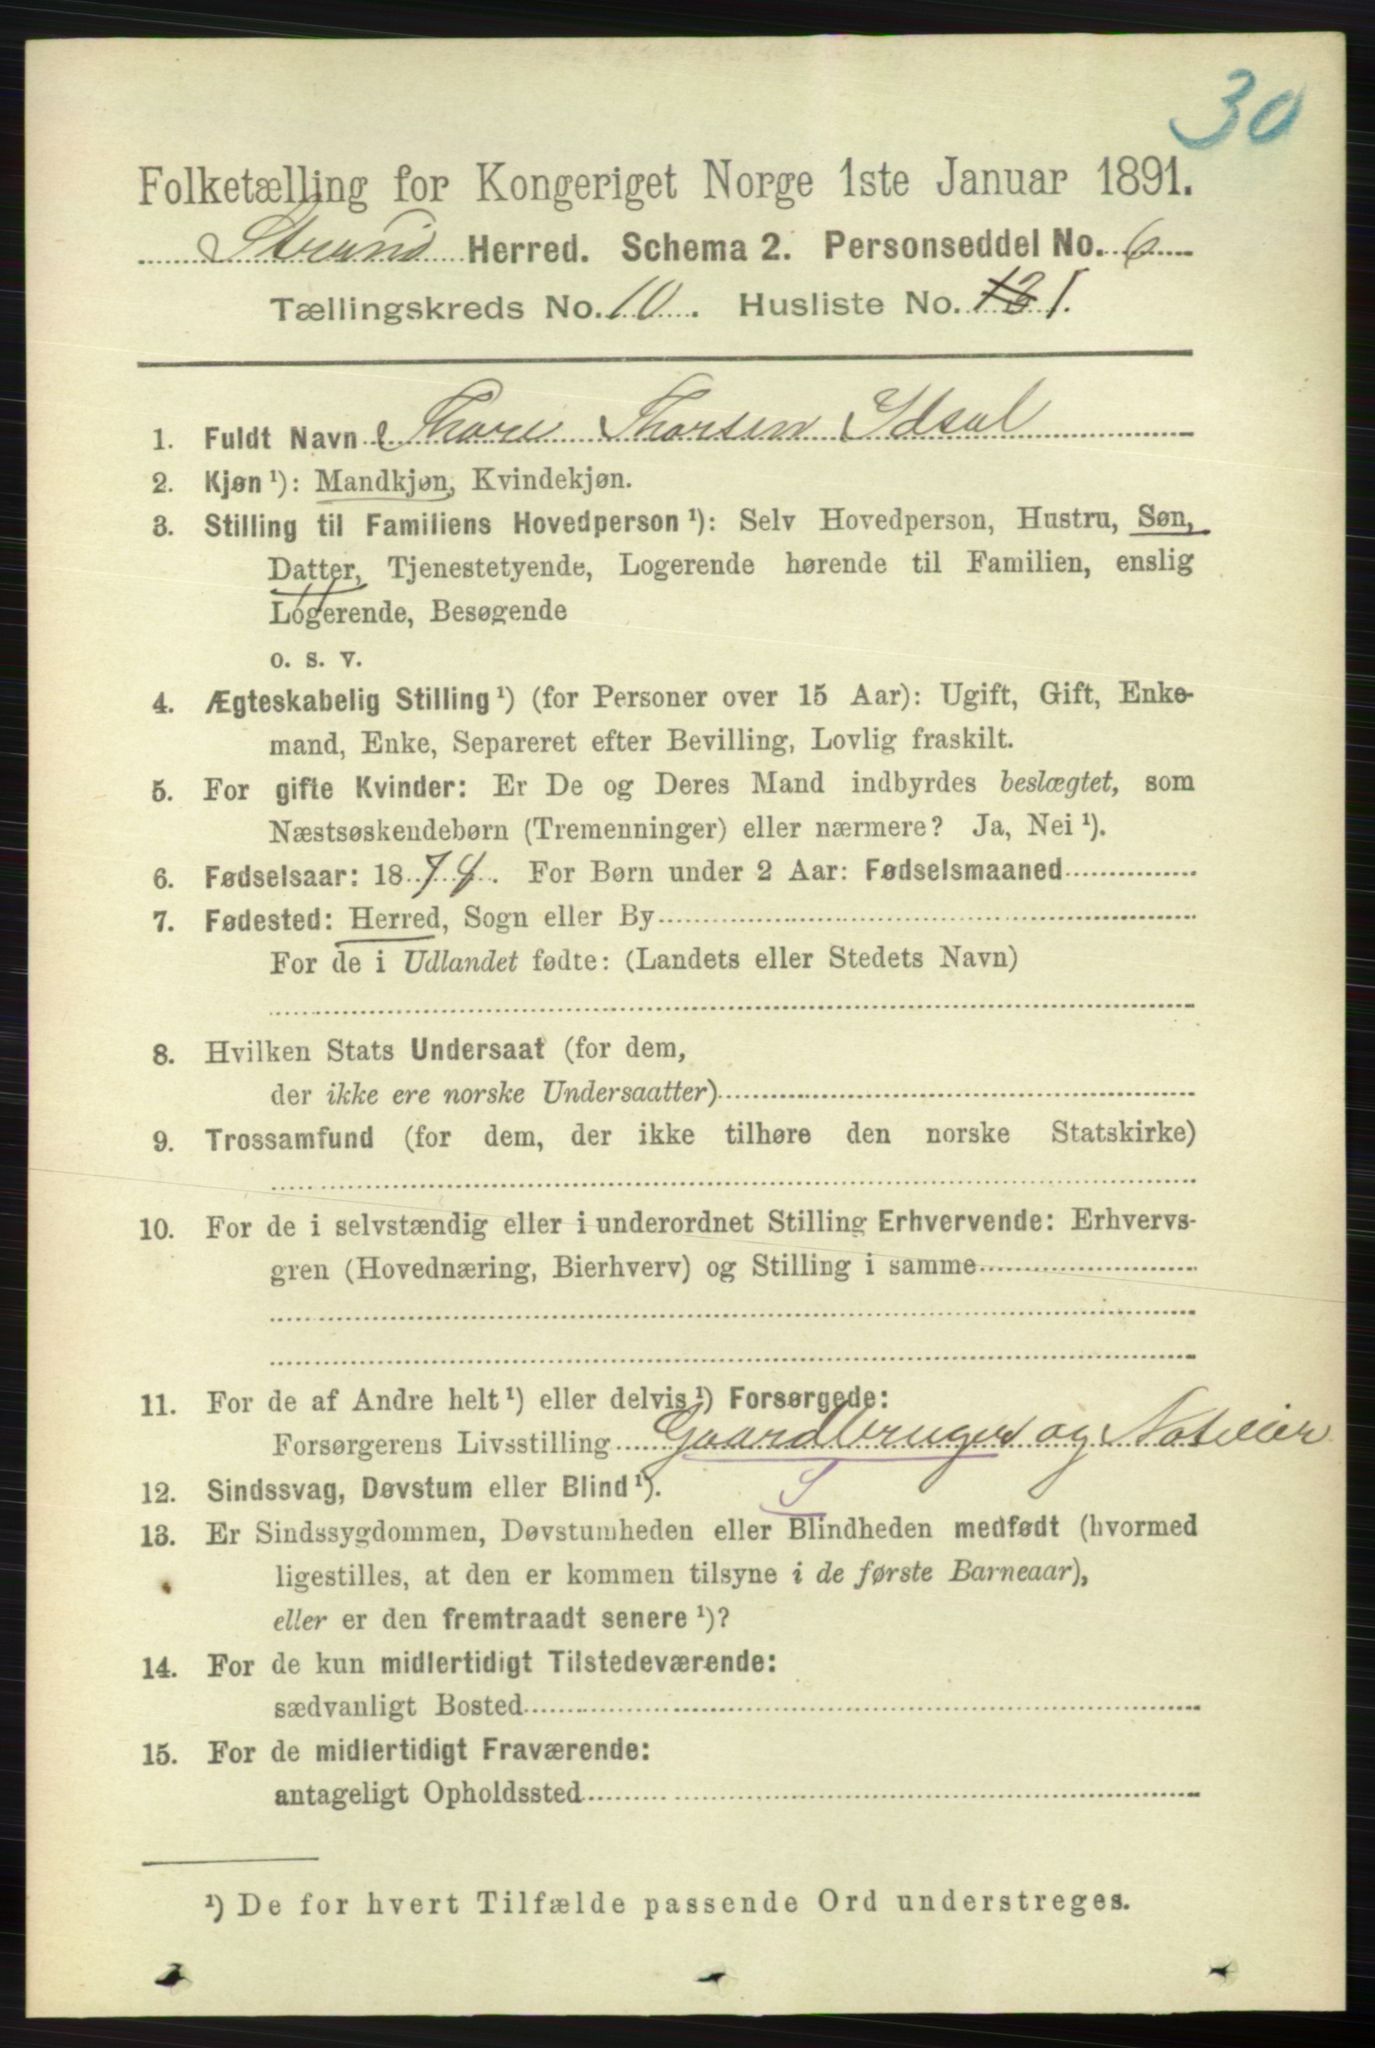 30
Folketælling for Kongeriget Norge 1ste Januar 1891.
Strand Herred. Schema 2. Personseddel No. 6
Tællingskreds No. 10. Husliste No. 1.
1. Fuldt Navn Thore Thorsen Idsal
2. Kjøn ¹): Mandkjøn, Kvindekjøn.
3. Stilling til Familiens Hovedperson ¹): Selv Hovedperson, Hustru, Søn,
Datter, Tjenestetyende, Logerende hørende til Familien, enslig
Logerende, Besøgende
o. s. v.
4. Ægteskabelig Stilling ¹) (for Personer over 15 Aar): Ugift, Gift, Enke-
mand, Enke, Separeret efter Bevilling, Lovlig fraskilt.
5. For gifte Kvinder: Er De og Deres Mand indbyrdes beslægtet, som
Næstsøskendebørn (Tremenninger) eller nærmere? Ja, Nei ¹).
6. Fødselsaar: 18 For Børn under 2 Aar: Fødselsmaaned
7. Fødested: Herred, Sogn eller By
For de i Udlandet fødte: (Landets eller Stedets Navn)
8. Hvilken Stats Undersaat (for dem,
der ikke ere norske Undersaatter)
9. Trossamfund (for dem, der ikke tilhøre den norske Statskirke)
10. For de i selvstændig eller i underordnet Stilling Erhvervende: Erhvervs-
gren (Hovednæring, Bierhverv) og Stilling i samme
11. For de af Andre helt ¹) eller delvis ¹) Forsørgede:
Forsørgerens Livsstilling Gaardbruger og Noteier
12. Sindssvag, Døvstum eller Blind ¹).
13. Er Sindssygdommen, Døvstumheden eller Blindheden medfødt (hvormed
ligestilles, at den er kommen tilsyne i de første Barneaar),
eller er den fremtraadt senere ¹)?
14. For de kun midlertidigt Tilstedeværende:
sædvanligt Bosted
15. For de midlertidigt Fraværende:
antageligt Opholdssted
¹) De for hvert Tilfælde passende Ord understreges.